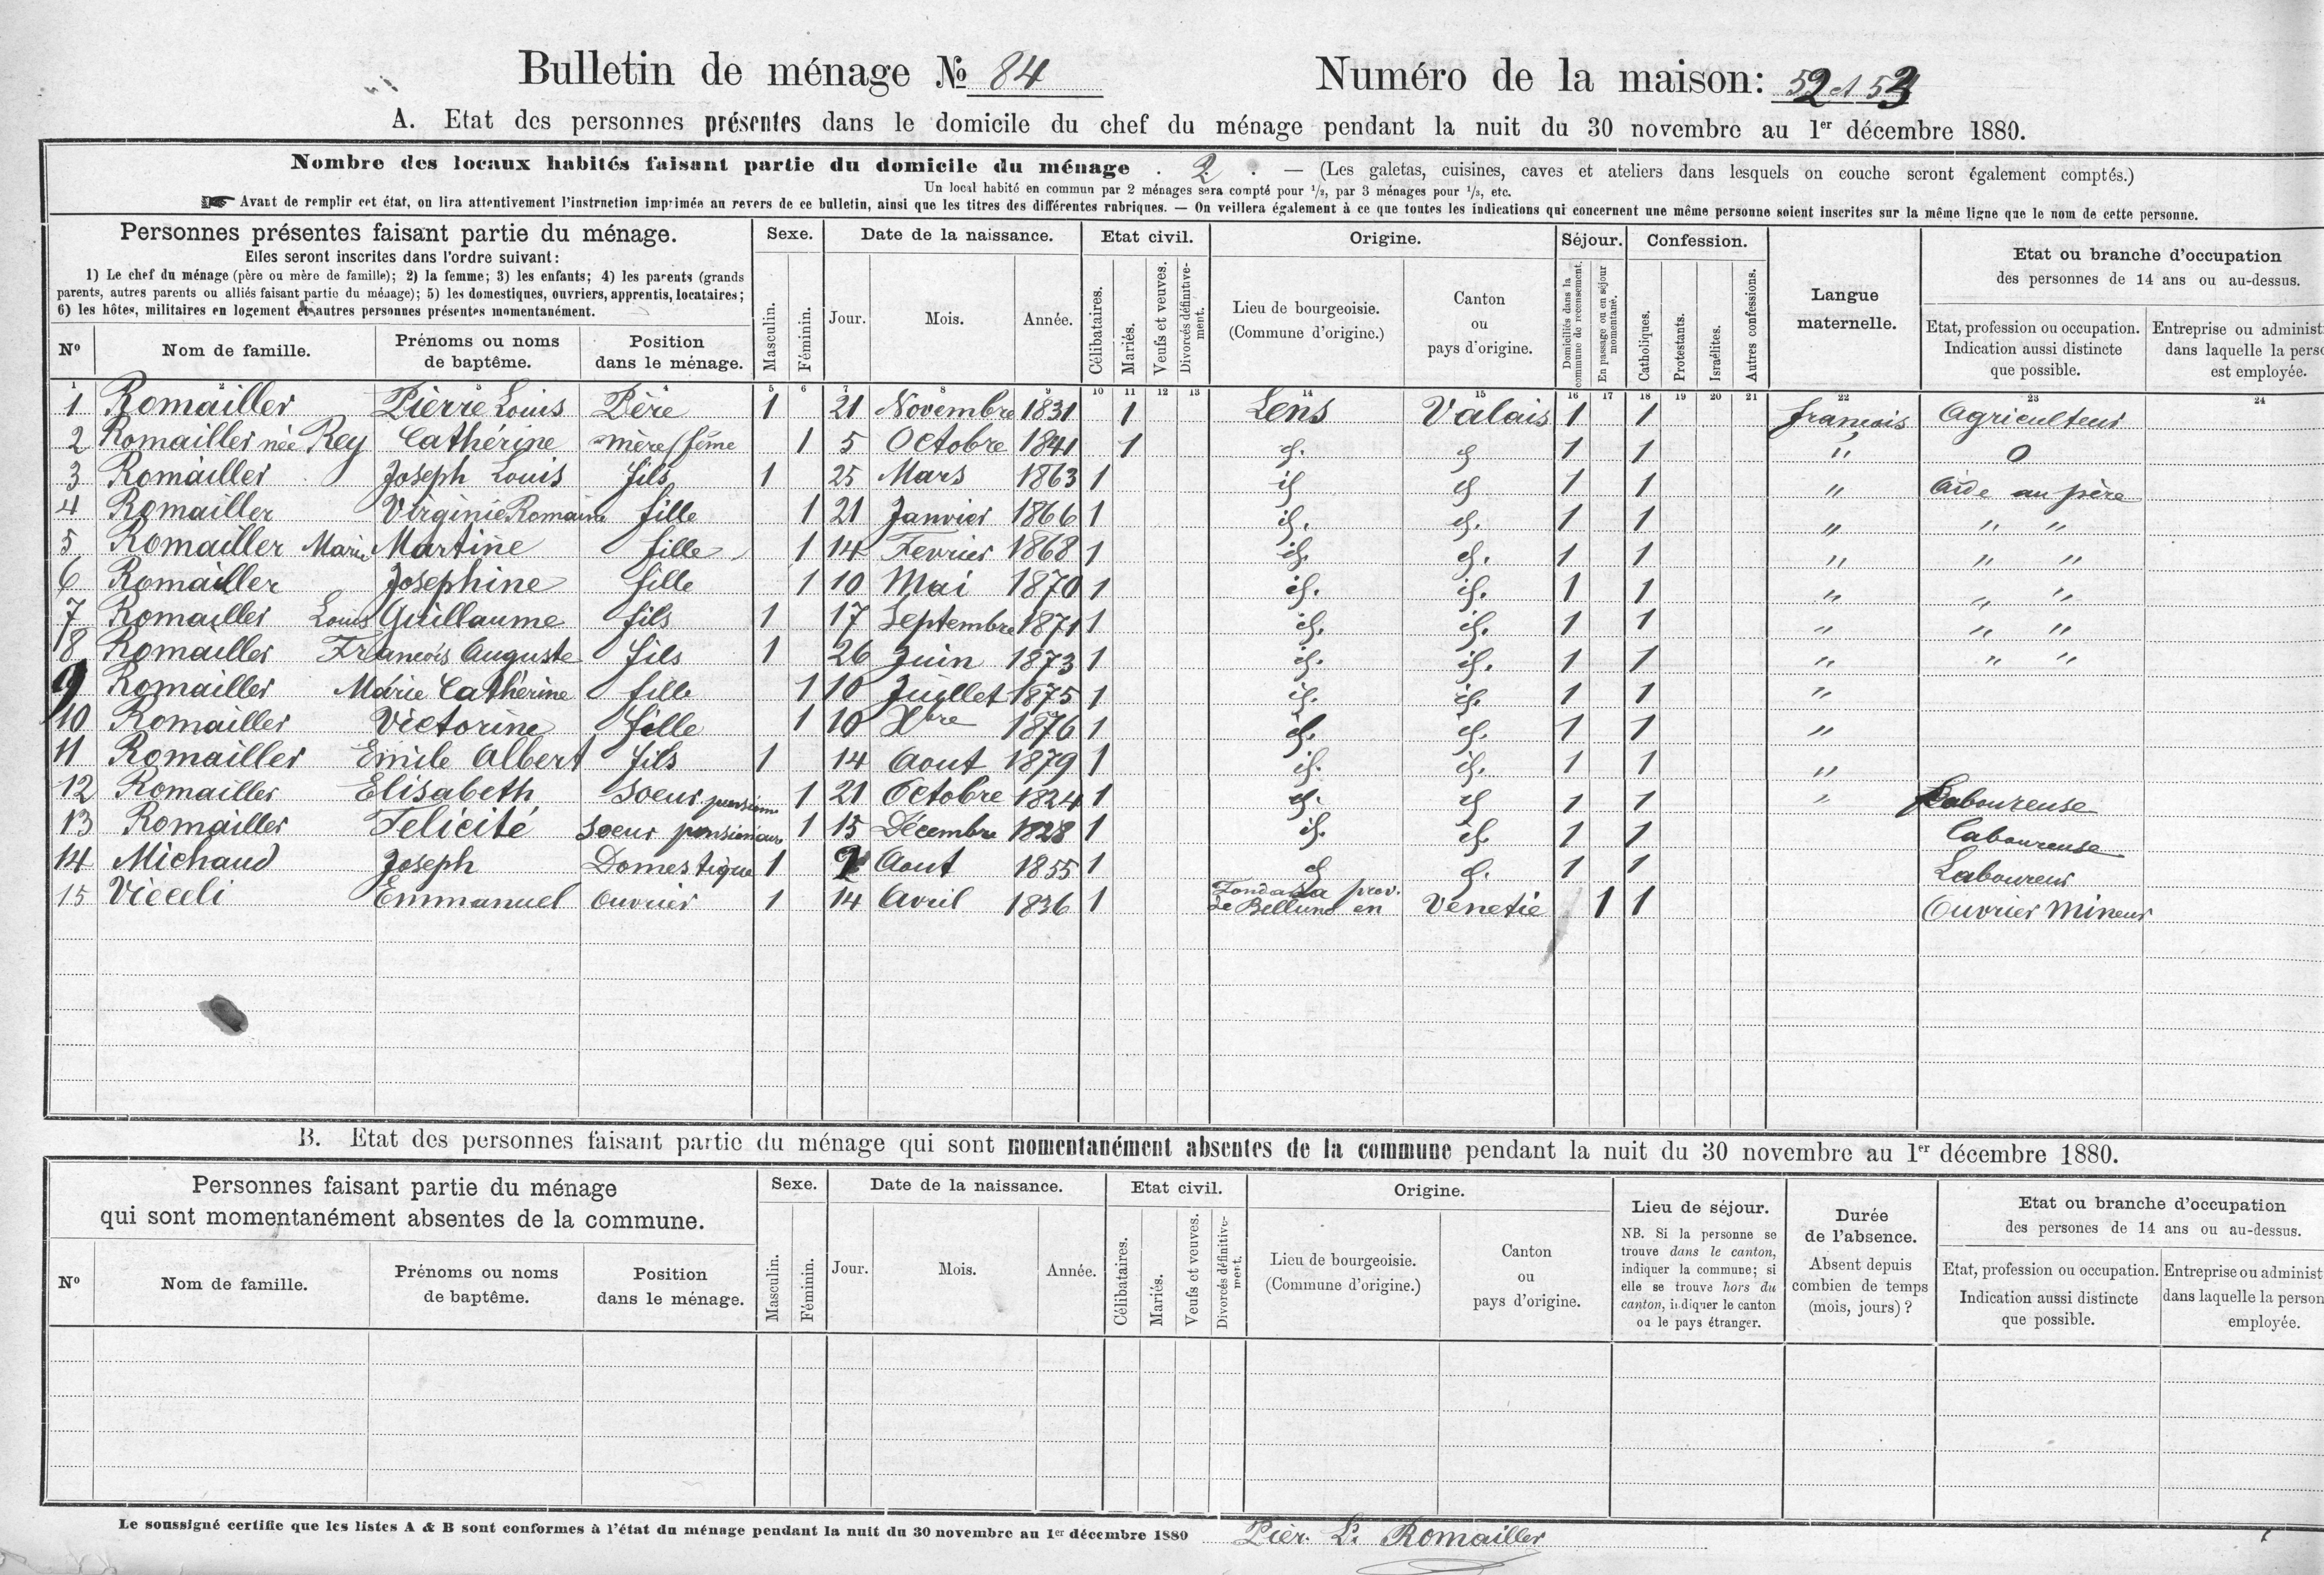 Bulletin de ménage № 84 Numéro de la maison: 52 et 53
A. Etat des personnes présentes dans le domicile du chef du ménage pendant la nuit du 30 novembre au 1er décembre 1880.
Nombre des locaux habités faisant partie du domicile du ménage . 2 . — (Les galetas, cuisines, caves et ateliers dans lesquels on couche seront également comptés.)
Un local habité en commun par 2 ménages sera compté pour 1/2, par 3 ménages pour 1/3, etc.
☛ Avant de remplir cet état, on lira attentivement l'instruction imprimée au revers de ce bulletin, ainsi que les titres des différentes rubriques. — On veillera également à ce que toutes les indications qui concernent une même personne soient inscrites sur la même ligne que le nom de cette personne.
Personnes présentes faisant partie du ménage.
Elles seront inscrites dans l'ordre suivant:
1) Le chef du ménage (père ou mère de famille); 2) la femme; 3) les enfants; 4) les parents (grands
parents, autres parents ou alliés faisant partie du ménage); 5) les domestiques, ouvriers, apprentis, locataires;
6) les hôtes, militaires en logement et autres personnes présentes momentanément.
Nº Nom de famille. Prénoms ou noms de baptême. Position dans le ménage.
Sexe. Masculin. Féminin.
Date de la naissance. Jour. Mois. Année.
Etat civil. Célibataires. Mariés. Veufs et veuves. Divorcés définitivement.
Origine. Lieu de bourgeoisie. (Commune d'origine.) Canton ou pays d'origine.
Séjour. Domiciliés dans la commune de recensement. En passage ou en séjour momentané.
Confession. Catholiques. Protestants. Israélites. Autres confessions.
Langue maternelle.
Etat ou branche d'occupation
des personnes de 14 ans ou au-dessus.
Etat, profession ou occupation. Indication aussi distincte que possible.
Entreprise ou administ
dans laquelle la perso
est employée.
1 2 3 4 5 6 7 8 9 10 11 12 13 14 15 16 17 18 19 20 21 22 23 24
1 Romailler Pièrre Louis Père 1 21 Novembre 1831 1 Lens Valais 1 1 francois Agriculteur
2 Romailler née Rey Cathérine mère/feme 1 5 Octobre 1841 1 id. id 1 1 " 0
3 Romailler Joseph Louis fils 1 25 Mars 1863 1 id id 1 1 " Aide au père
4 Romailler Virginie Romaine fille 1 21 Janvier 1866 1 id. id. 1 1 " " "
5 Romailler Marie Martine fille 1 14 Fevrier 1868 1 id. id. 1 1 " " "
6 Romailler Josephine fille 1 10 Mai 1870 1 id. id. 1 1 " " "
7 Romailler Louis Guillaume fils 1 17 Septembre 1871 1 id. id. 1 1 " " "
8 Romailler Francois Auguste fils 1 26 Juin 1873 1 id. id. 1 1 " " "
9 Romailler Marie Catherine fille 1 10 Juillet 1875 1 id. id. 1 1 "
10 Romailler Victorine fille 1 10 Xbre 1876 1 id. id. 1 1 "
11 Romailler Emile Albert fils 1 14 Aout 1879 1 id. id. 1 1 "
12 Romailler Elisabeth Soeur 1 21 Octobre 1824 1 id. id 1 1 " Laboureuse
13 Romailler Felicité Soeur 1 15 Décembre 1828 1 id. id. 1 1 Laboureuse
14 Michaud Joseph Domestique 1 Aout 1855 1 id id. 1 1 Laboureur
15 Emmanuel Ouvrier 1 14 Avril 1836 1 prov. de Bellund en Vénetie 1 1 Ouvrier Mineur
B. Etat des personnes faisant partie du ménage qui sont momentanément absentes de la commune pendant la nuit du 30 novembre au 1er décembre 1880.
Personnes faisant partie du ménage
qui sont momentanément absentes de la commune.
Nº Nom de famille. Prénoms ou noms de baptême. Position dans le ménage.
Sexe. Masculin. Féminin.
Date de la naissance. Jour. Mois. Année.
Etat civil. Célibataires. Mariés. Veufs et veuves. Divorcés définitivement.
Origine. Lieu de bourgeoisie. (Commune d'origine.) Canton ou pays d'origine.
Lieu de séjour.
NB. Si la personne se
trouve dans le canton,
indiquer la commune; si
elle se trouve hors du
canton, indiquer le canton
ou le pays étranger.
Durée
de l'absence.
Absent depuis
combien de temps
(mois, jours) ?
Etat ou branche d'occupation
des persones de 14 ans ou au-dessus.
Etat, profession ou occupation. Indication aussi distincte que possible.
Entreprise ou administ
dans laquelle la person
employée.
Le soussigné certifie que les listes A & B sont conformes à l'état du ménage pendant la nuit du 30 novembre au 1er décembre 1880 Pièr. L. Romailler